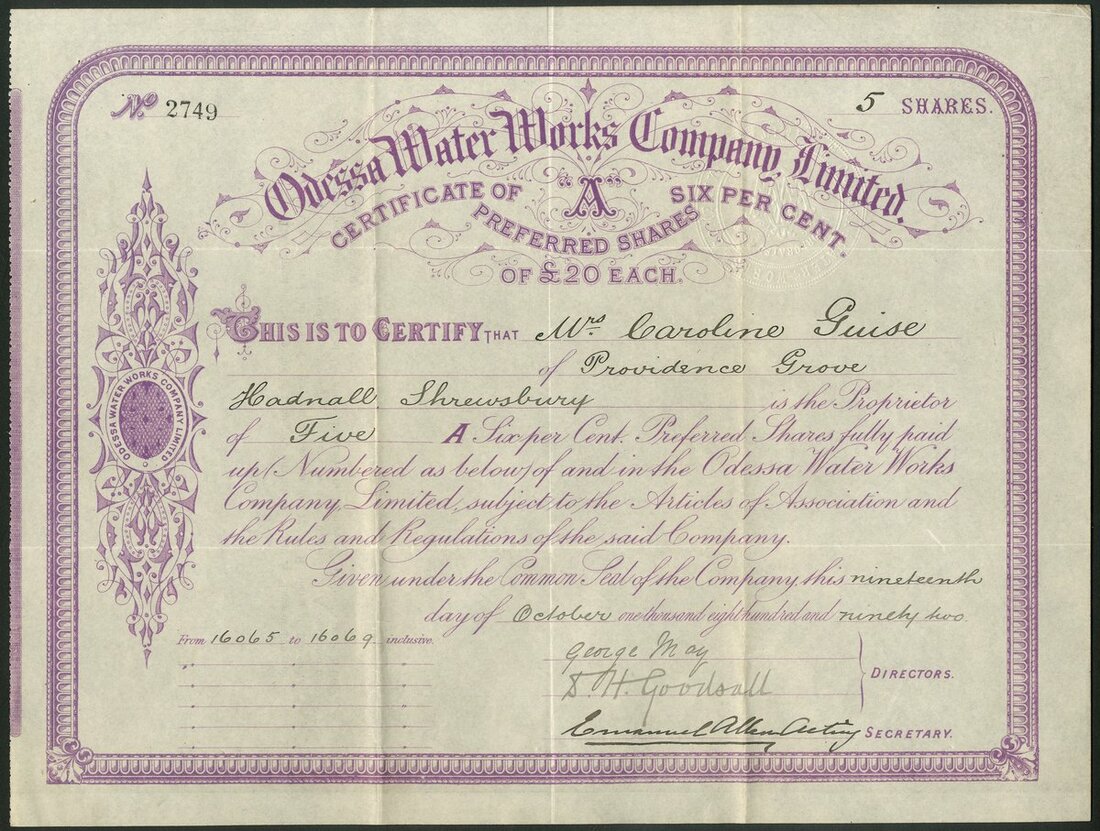 No 2749
5 SHARES.
Odessa Water Works Company, Limited.
CERTIFICATE OF "A" SIX PER CENT.
PREFERRED SHARES
OF £20 EACH.
THIS IS TO CERTIFY THAT Mrs. Caroline Guise
of Providence Grove
Hadnall Shrewsbury is the Proprietor
of Five A Six per Cent. Preferred Shares fully paid
up (Numbered as below) of and in the Odessa Water Works
Company, Limited, subject to the Articles of Association and
the Rules and Regulations of the said Company.
Given under the Common Seal of the Company, this nineteenth
day of October one thousand eight hundred and ninety two
From 16065 to 16069 inclusive.
George May
S. H. Goodsall
DIRECTORS.
Emanuel Allen Acting SECRETARY.
ODESSA WATER WORKS COMPANY, LIMITED